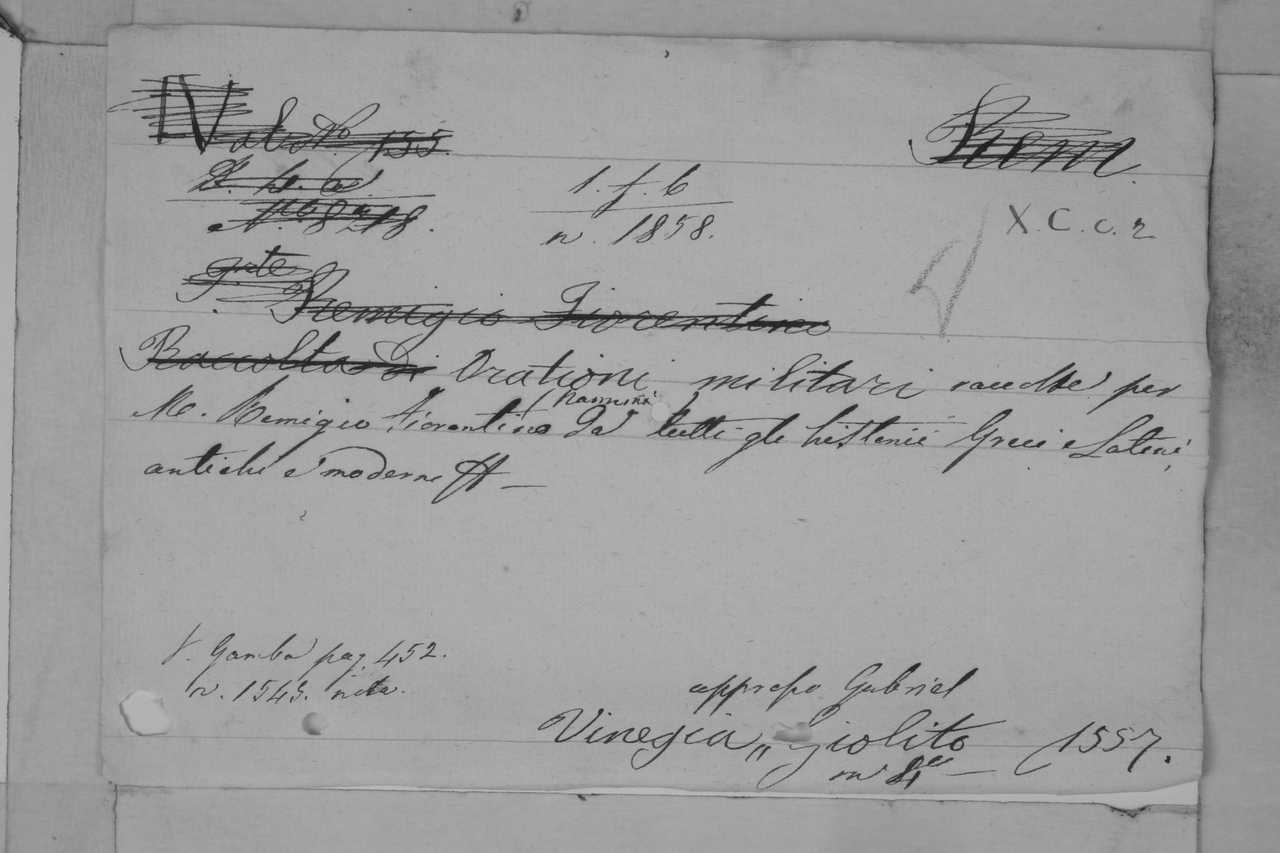 No 155.
Rem
N. 8218.
1. f. 6
n. 1858.
X. C. 0. 2
Remigio Fiorentino
Raccolta di Orationi militari raccolte per
Nannini
M. Remigio Fiorentino da tutti gli historici Greci e Latini,
antichi e moderni
V. Gamba pag. 452.
n. 1543. nota.
appresso Gabriel
Vinegia,, Giolito 1557.
in 4to